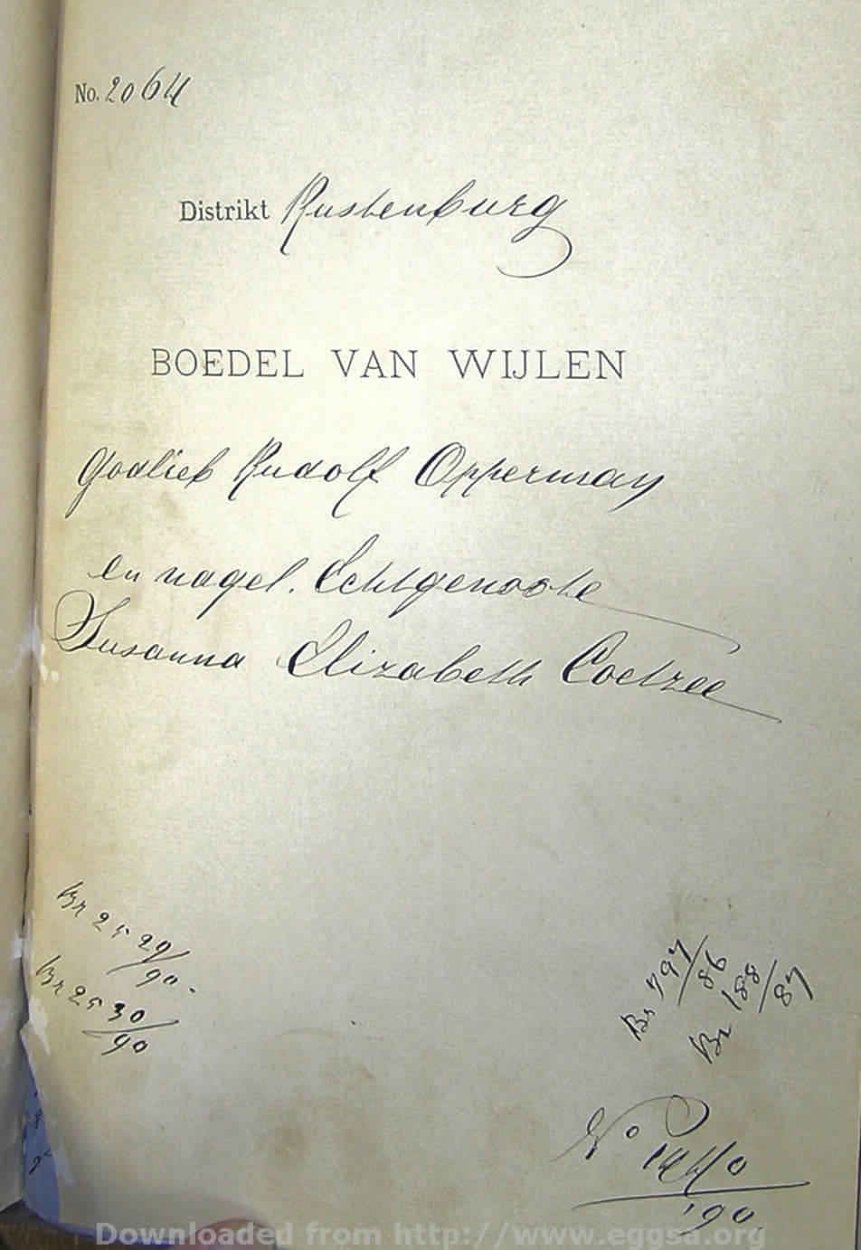 No. 2064
Distrikt Rustenburg
BOEDEL VAN WIJLEN
Godlieb Rudolf Opperman
en nagel. Echtgenoote
Susanna Elizabeth Coetzee
Br 2529/90.
Br 2530/90
Br 797/86
Br 188/87
No /90
Downloaded from http://www.eggsa.org